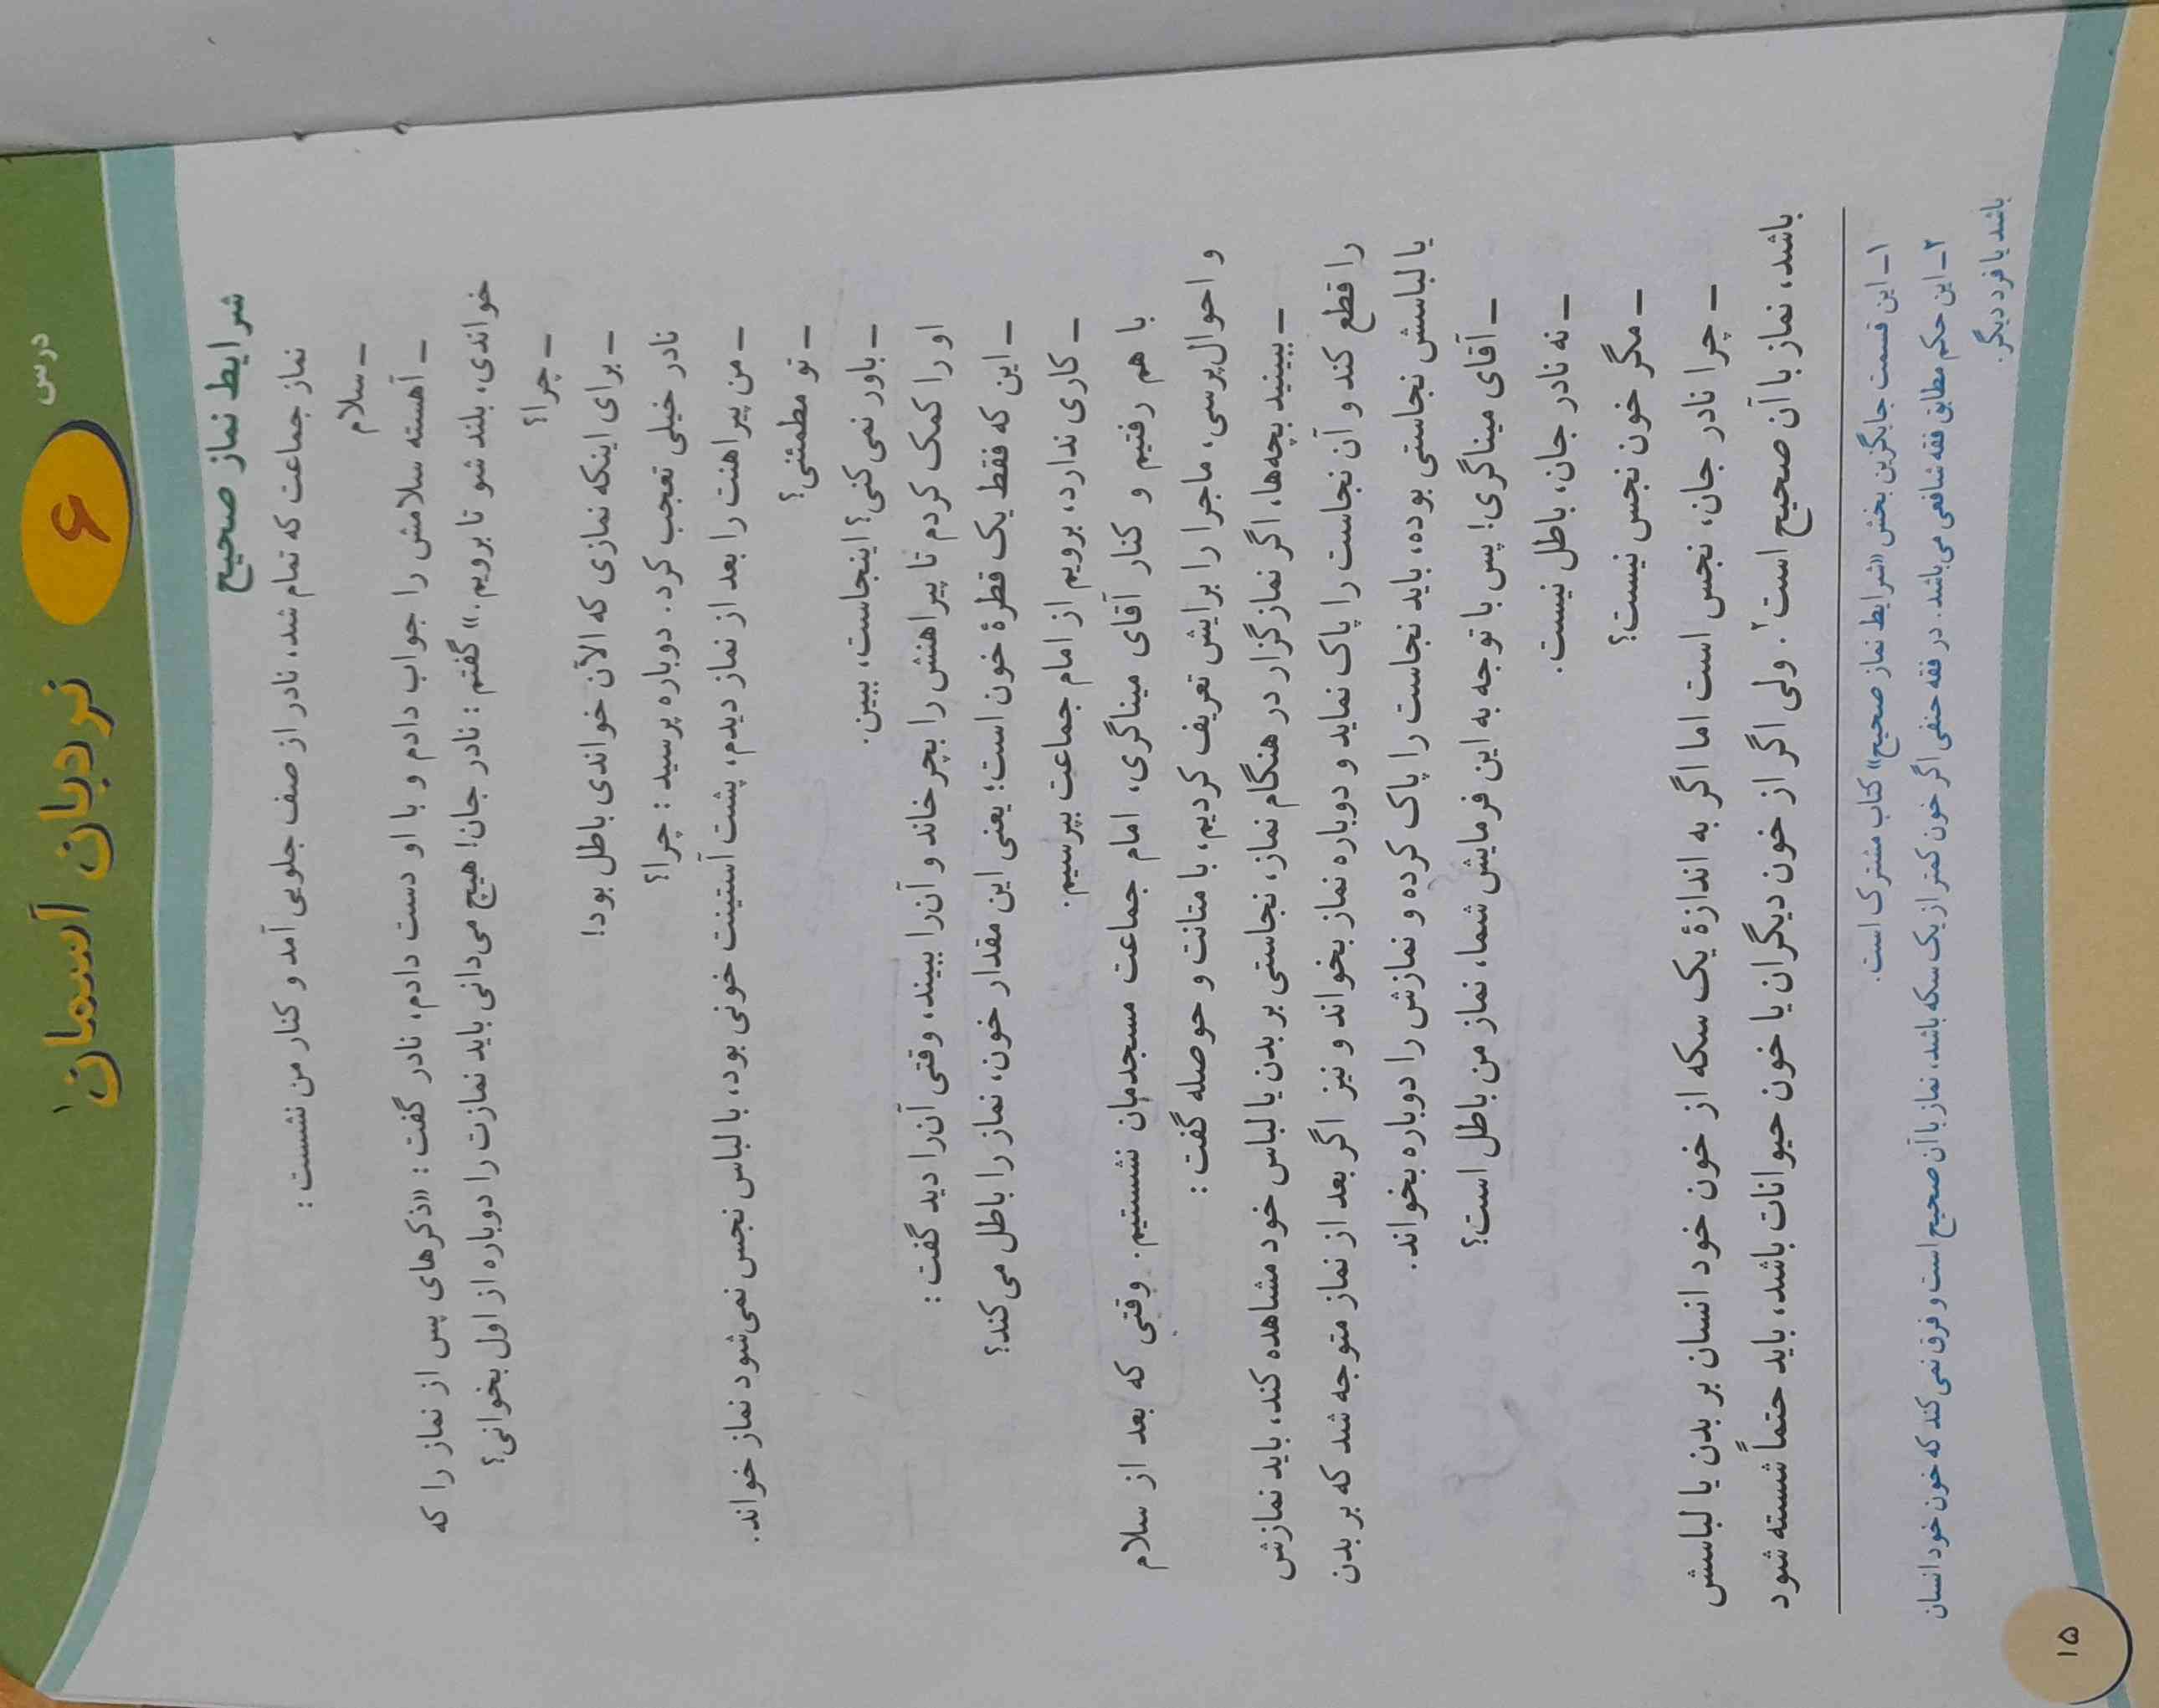 درس
۶
نردبان آسمان۱
شرایط نماز صحیح
نماز جماعت که تمام شد، نادر از صف جلویی آمد و کنار من نشست :
ـ سلام
ـ آهسته سلامش را جواب دادم و با او دست دادم، نادر گفت : «ذکرهای پس از نماز را که
خواندی، بلند شو تا برویم.» گفتم : نادر جان! هیچ می‌دانی باید نمازت را دوباره از اول بخوانی؟
ـ چرا؟
ـ برای اینکه نمازی که الآن خواندی باطل بود!
نادر خیلی تعجب کرد. دوباره پرسید : چرا؟
ـ من پیراهنت را بعد از نماز دیدم، پشت آستینت خونی بود، با لباس نجس نمی‌شود نماز خواند.
ـ تو مطمئنی؟
ـ باور نمی‌کنی؟ اینجاست، ببین.
او را کمک کردم تا پیراهنش را بچرخاند و آن‌را ببیند، وقتی آن‌را دید گفت :
ـ این که فقط یک قطرهٔ خون است؛ یعنی این مقدار خون، نماز را باطل می‌کند؟
ـ کاری ندارد، برویم از امام جماعت بپرسیم.
با هم رفتیم و کنار آقای میناگری، امام جماعت مسجدمان نشستیم. وقتی که بعد از سلام
و احوال‌پرسی، ماجرا را برایش تعریف کردیم، با متانت و حوصله گفت :
ـ ببینید بچه‌ها، اگر نمازگزار در هنگام نماز، نجاستی بر بدن یا لباس خود مشاهده کند، باید نمازش
را قطع کند و آن نجاست را پاک نماید و دوباره نماز بخواند و نیز اگر بعد از نماز متوجه شد که بر بدن
یا لباسش نجاستی بوده، باید نجاست را پاک کرده و نمازش را دوباره بخواند.
ـ آقای میناگری! پس با توجه به این فرمایش شما، نماز من باطل است؟
ـ نه نادر جان، باطل نیست.
ـ مگر خون نجس نیست؟
ـ چرا نادر جان، نجس است اما اگر به اندازهٔ یک سکه از خون خود انسان بر بدن یا لباسش
باشد، نماز با آن صحیح است۲. ولی اگر از خون دیگران یا خون حیوانات باشد، باید حتماً شسته شود
۱ـ این قسمت جایگزین بخش «شرایط نماز صحیح» کتاب مشترک است.
۲ـ این حکم مطابق فقه شافعی می‌باشد. در فقه حنفی اگر خون کمتر از یک سکه باشد، نماز با آن صحیح است و فرق نمی‌کند که خون خود انسان
باشد یا فرد دیگر.
۱۵